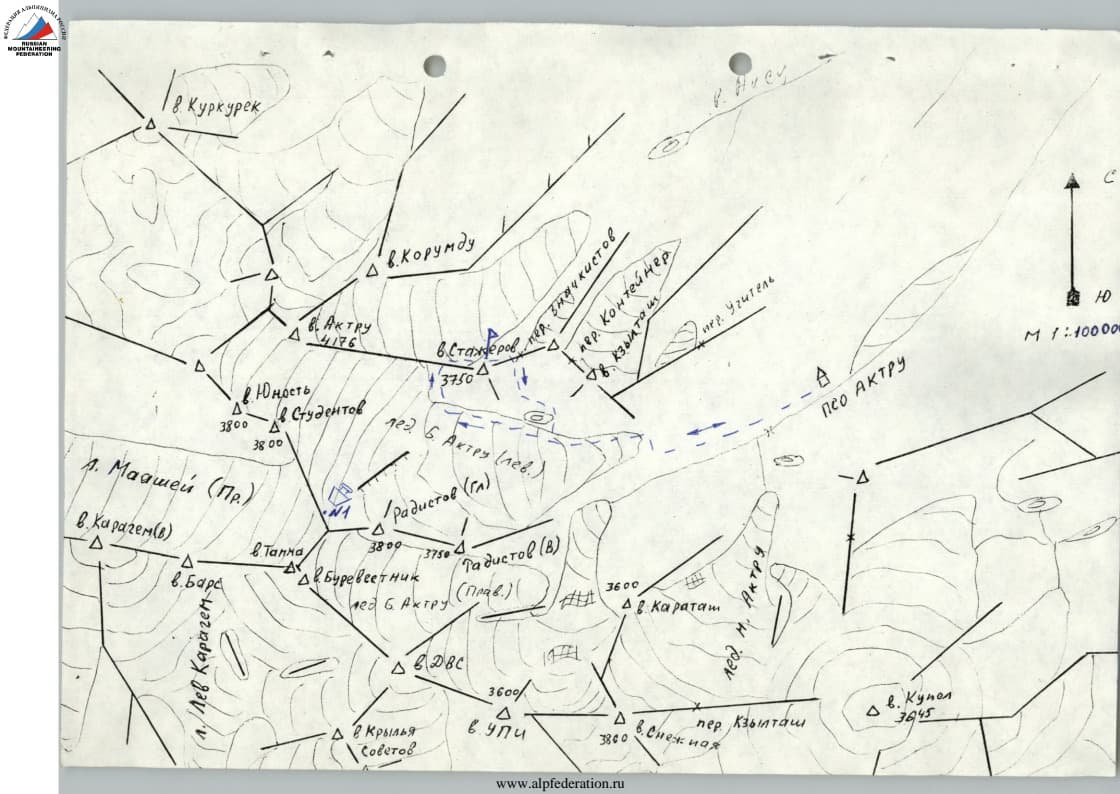 ФЕДЕРАЦИЯ АЛЬПИНИЗМА РОССИИ
RUSSIAN
MOUNTAINEERING
FEDERATION
в. Куркурек
С
в. Корумду
пер. Значкистов
пер. Контейнер
в. Кзылташ
пер. Учитель
Ю
М 1:100000
в. Актру
4176
в. Стажеров
3750
ПСО АКТРУ
в. Юность
3800
в Студентов
3800
лед. Б. Актру (лев.)
л. Маашей (Пр.)
N1
Радистов (Гл)
3800
в. Карагем(в)
в. Барс
в Тамма
3750
Радистов (В)
в. Буревестник
лед Б. Актру (Прав.)
3600
в. Караташ
лед. М. Актру
л. Лев Карагем
в ДВС
3600
в УПИ
в Крылья
Советов
в. Снежная
3800
пер. Кзылташ
в. Купол
3645
www.alpfederation.ru